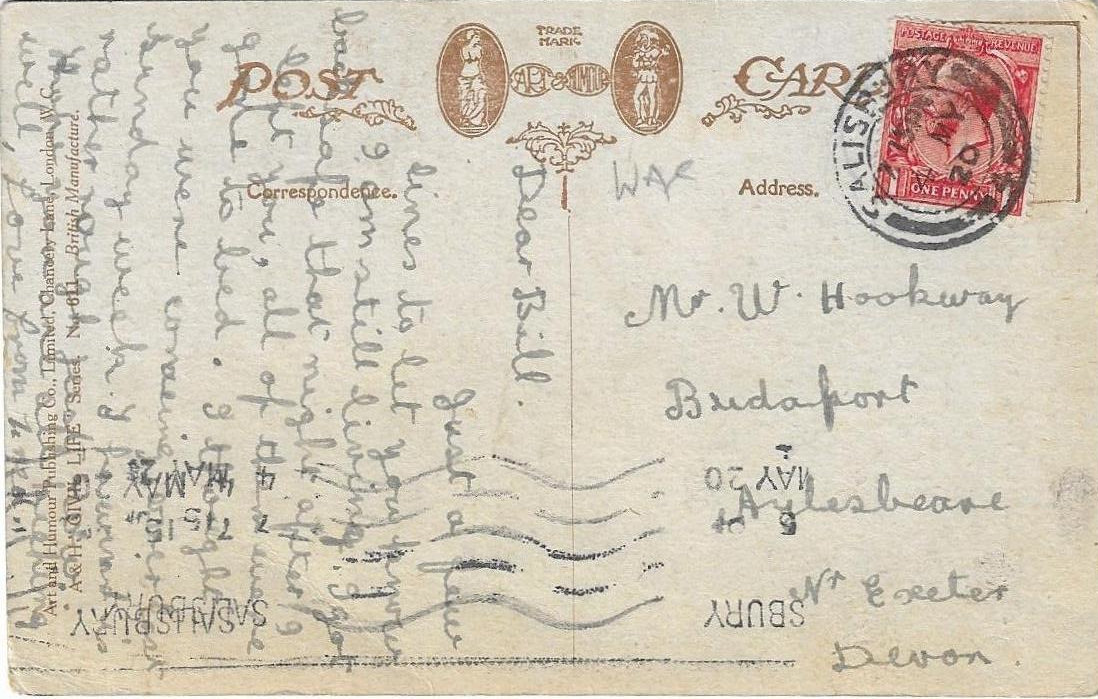 POST CARD
TRADE
MARK
ART & HUMOUR
Correspondence.
Address.
WAF
POSTAGE REVENUE
ONE PENNY
SALISBURY
MY
20
Dear Bill.
Just a few
lines to let you know
I am still living. I got
back safe that night after I
left you, all of them were
gone to bed. I thought
you were coming over
Sunday week. I
rather rough
Hoping all are keeping
well, Love from
Mr. W. Hookway
Budaport
Aylesbeare
Nr Exeter
Devon.
SALISBURY
7 15
4 MAY 20
SALISBURY
7 15
4 MAY
SBURY
5
MAY 20
Art and Humour Publishing Co., Limited, Chancery Lane, London, W.C.
A. & H. "CIVIL LIFE" Series. No. 611. British Manufacture.